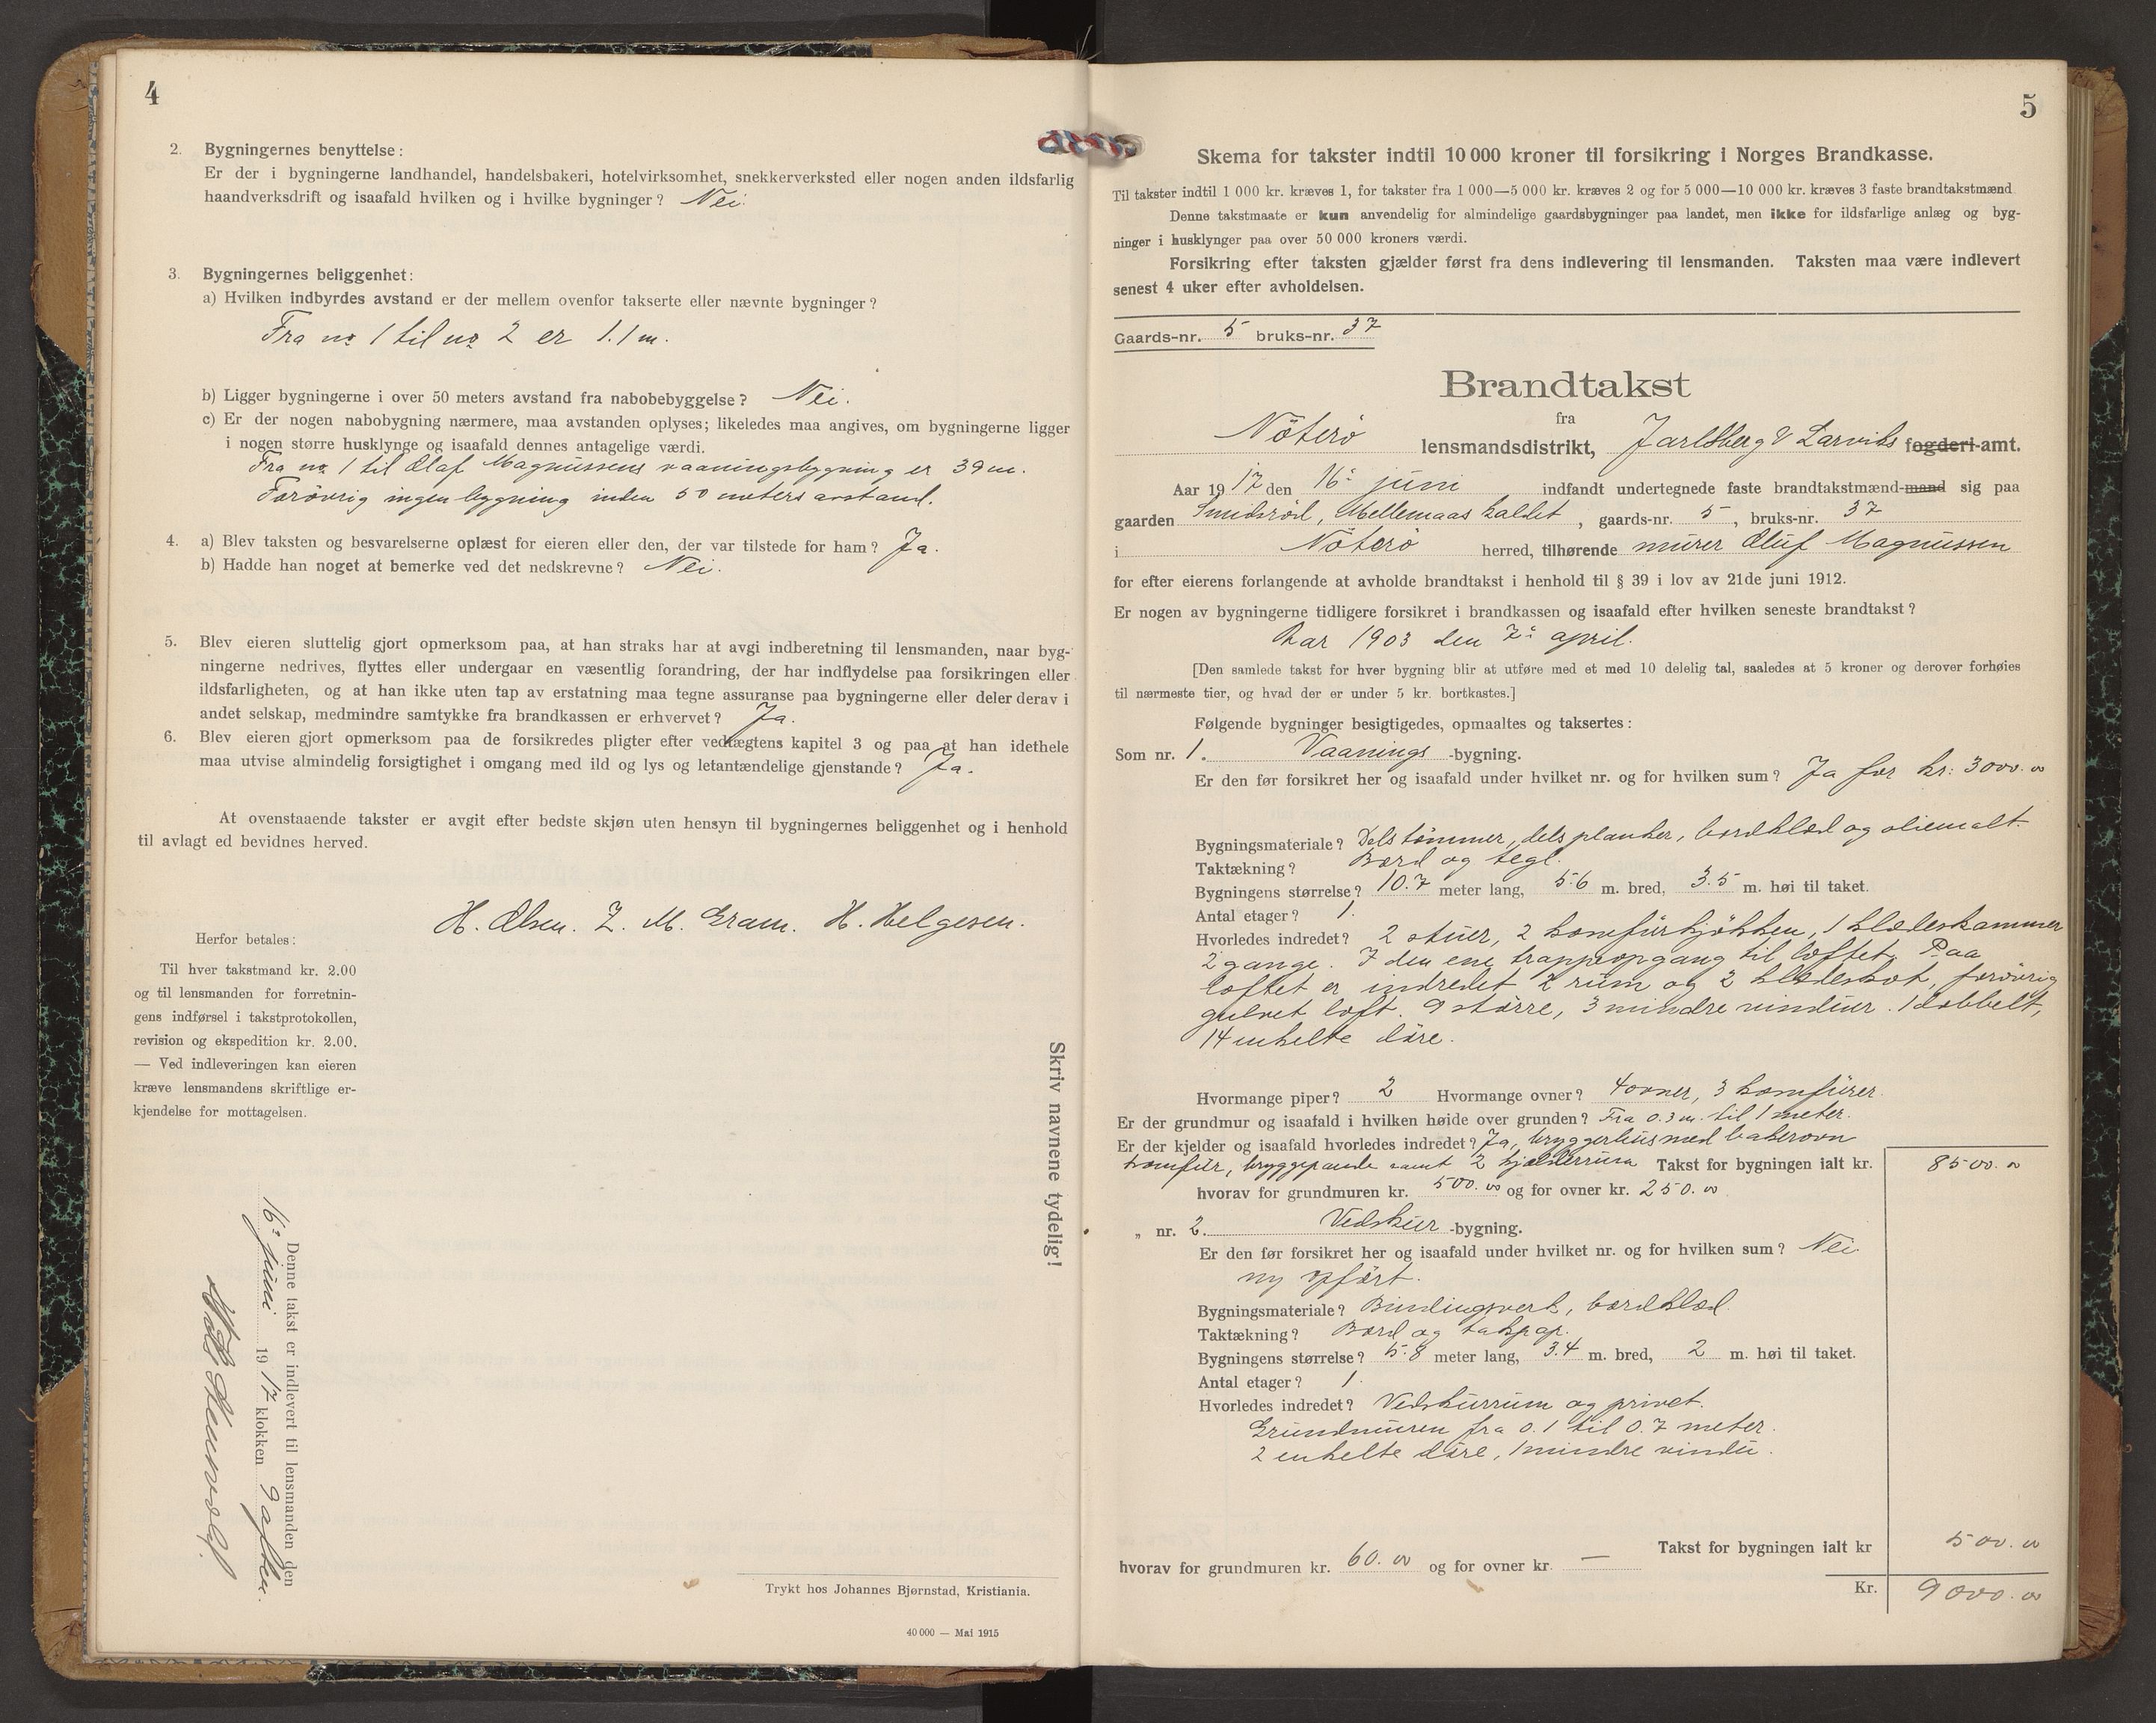 4
2. Bygningernes benyttelse:
Er der i bygningerne landhandel, handelsbakeri, hotelvirksomhet, snekkerverksted eller nogen anden ildsfarlig
haandverksdrift og isaafald hvilken og i hvilke bygninger? Nei.
3. Bygningernes beliggenhet:
a) Hvilken indbyrdes avstand er der mellem ovenfor takserte eller nævnte bygninger?
Fra no 1 til no 2 er 1.1 m.
b) Ligger bygningerne i over 50 meters avstand fra nabobebyggelse? Nei.
c) Er der nogen nabobygning nærmere, maa avstanden oplyses; likeledes maa angives, om bygningerne ligger
i nogen større husklynge og isaafald dennes antagelige værdi.
Fra no. 1 til Olaf Magnussens vaaningsbygning er 39 m.
Forövrig ingen bygning inden 50 meters avstand.
4. a) Blev taksten og besvarelserne oplæst for eieren eller den, der var tilstede for ham? Ja.
b) Hadde han noget at bemerke ved det nedskrevne? Nei.
5. Blev eieren sluttelig gjort opmerksom paa, at han straks har at avgi indberetning til lensmanden, naar byg-
ningerne nedrives, flyttes eller undergaar en væsentlig forandring, der har indflydelse paa forsikringen eller
ildsfarligheten, og at han ikke uten tap av erstatning maa tegne assuranse paa bygningerne eller deler derav i
andet selskap, medmindre samtykke fra brandkassen er erhvervet? Ja.
6. Blev eieren gjort opmerksom paa de forsikredes pligter efter vedtægtens kapitel 3 og paa at han idethele
maa utvise almindelig forsigtighet i omgang med ild og lys og letantændelige gjenstande? Ja.
At ovenstaaende takster er avgit efter bedste skjøn uten hensyn til bygningernes beliggenhet og i henhold
til avlagt ed bevidnes herved.
H. Olsen. Z. M. Gram. H. Helgesen.
Herfor betales:
Til hver takstmand kr. 2.00
og til lensmanden for forretnin-
gens indførsel i takstprotokollen,
revision og ekspedition kr. 2.00.
— Ved indleveringen kan eieren
kræve lensmandens skriftlige er-
kjendelse for mottagelsen.
Skriv navnene tydelig!
Denne takst er indlevert til lensmanden den
16: juni 1917 klokken 9 aften.
Trykt hos Johannes Bjørnstad, Kristiania.
40 000 — Mai 1915
5
Skema for takster indtil 10 000 kroner til forsikring i Norges Brandkasse.
Til takster indtil 1 000 kr. kræves 1, for takster fra 1 000—5 000 kr. kræves 2 og for 5 000—10 000 kr. kræves 3 faste brandtakstmænd
Denne takstmaate er kun anvendelig for almindelige gaardsbygninger paa landet, men ikke for ildsfarlige anlæg og byg-
ninger i husklynger paa over 50 000 kroners værdi.
Forsikring efter taksten gjælder først fra dens indlevering til lensmanden. Taksten maa være indlevert
senest 4 uker efter avholdelsen.
Gaards-nr. 5 bruks-nr. 37
Brandtakst
fra
Nöterö lensmandsdistrikt, Jarlsberg & Larviks fogderi-amt.
Aar 1917 den 16: juni indfandt undertegnede faste brandtakstmænd-mand sig paa
gaarden Smidsröd, Mellemaas kaldet, gaards-nr. 5, bruks-nr. 37
i Nöterö herred, tilhørende murer Oluf Magnussen
for efter eierens forlangende at avholde brandtakst i henhold til § 39 i lov av 21de juni 1912.
Er nogen av bygningerne tidligere forsikret i brandkassen og isaafald efter hvilken seneste brandtakst?
Aar 1903 den 7: april.
[Den samlede takst for hver bygning blir at utføre med et med 10 delelig tal, saaledes at 5 kroner og derover forhøies
til nærmeste tier, og hvad der er under 5 kr. bortkastes.]
Følgende bygninger besigtigedes, opmaaltes og taksertes:
Som nr. 1. Vaanings -bygning.
Er den før forsikret her og isaafald under hvilket nr. og for hvilken sum? Ja for kr: 3000.00
Bygningsmateriale? Dels tömmer, dels planker, bordklæd og oliemalt.
Taktækning? Bord og tegl.
Bygningens størrelse? 10.7 meter lang, 5.6 m. bred, 3.5 m. høi til taket.
Antal etager? 1.
Hvorledes indredet? 2 stuer, 2 komfürkjökken, 1 klædeskammer
2 gange. I den ene trappeopgang til loftet. Paa
loftet er indredet 2 rüm og 2 klædeskot, forövrig
gulvet loft. 9 större, 3 mindre vindüer. 1 dobbelt,
14 enkelte döre.
Hvormange piper? 2 Hvormange ovner? 4 ovner, 3 komfürer.
Er der grundmur og isaafald i hvilken høide over grunden? Fra 0.3 m. til 1 meter.
Er der kjelder og isaafald hvorledes indredet? Ja, bryggerhüs med bakerovn
komfür, bryggepande samt 2 kjælderrüm Takst for bygningen ialt kr. 8500.00
hvorav for grundmuren kr. 500.00 og for ovner kr. 250.00
„ nr. 2. Vedskür -bygning.
Er den før forsikret her og isaafald under hvilket nr. og for hvilken sum? Nei
ny opfört.
Bygningsmateriale? Bindingsverk, bordklæd.
Taktækning? Bord og takpap.
Bygningens størrelse? 5.8 meter lang, 3.4 m. bred, 2 m. høi til taket.
Antal etager? 1.
Hvorledes indredet? Vedskürrüm og privet.
Grundmüren fra 0.1 til 0.7 meter.
2 enkelte döre, 1 mindre vindü.
Takst for bygningen ialt kr 500.00
hvorav for grundmuren kr. 60.00 og for ovner kr. —
Kr. 9000.00